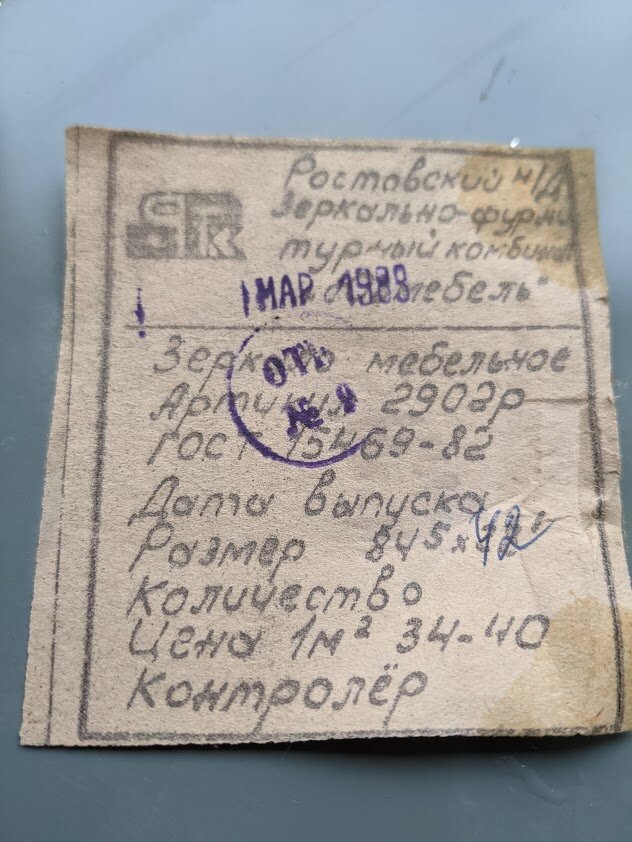 Ростовский н/Д
зеркально-фурни
турный комбинат
мебель"
МАР 1988
Зеркало мебельное
ОТК
№ 9
Артикул 2902р
гост 15469-82
Дата выпуска
Размер 845х
42
Количество
Цена 1м² 34-40
Контролёр